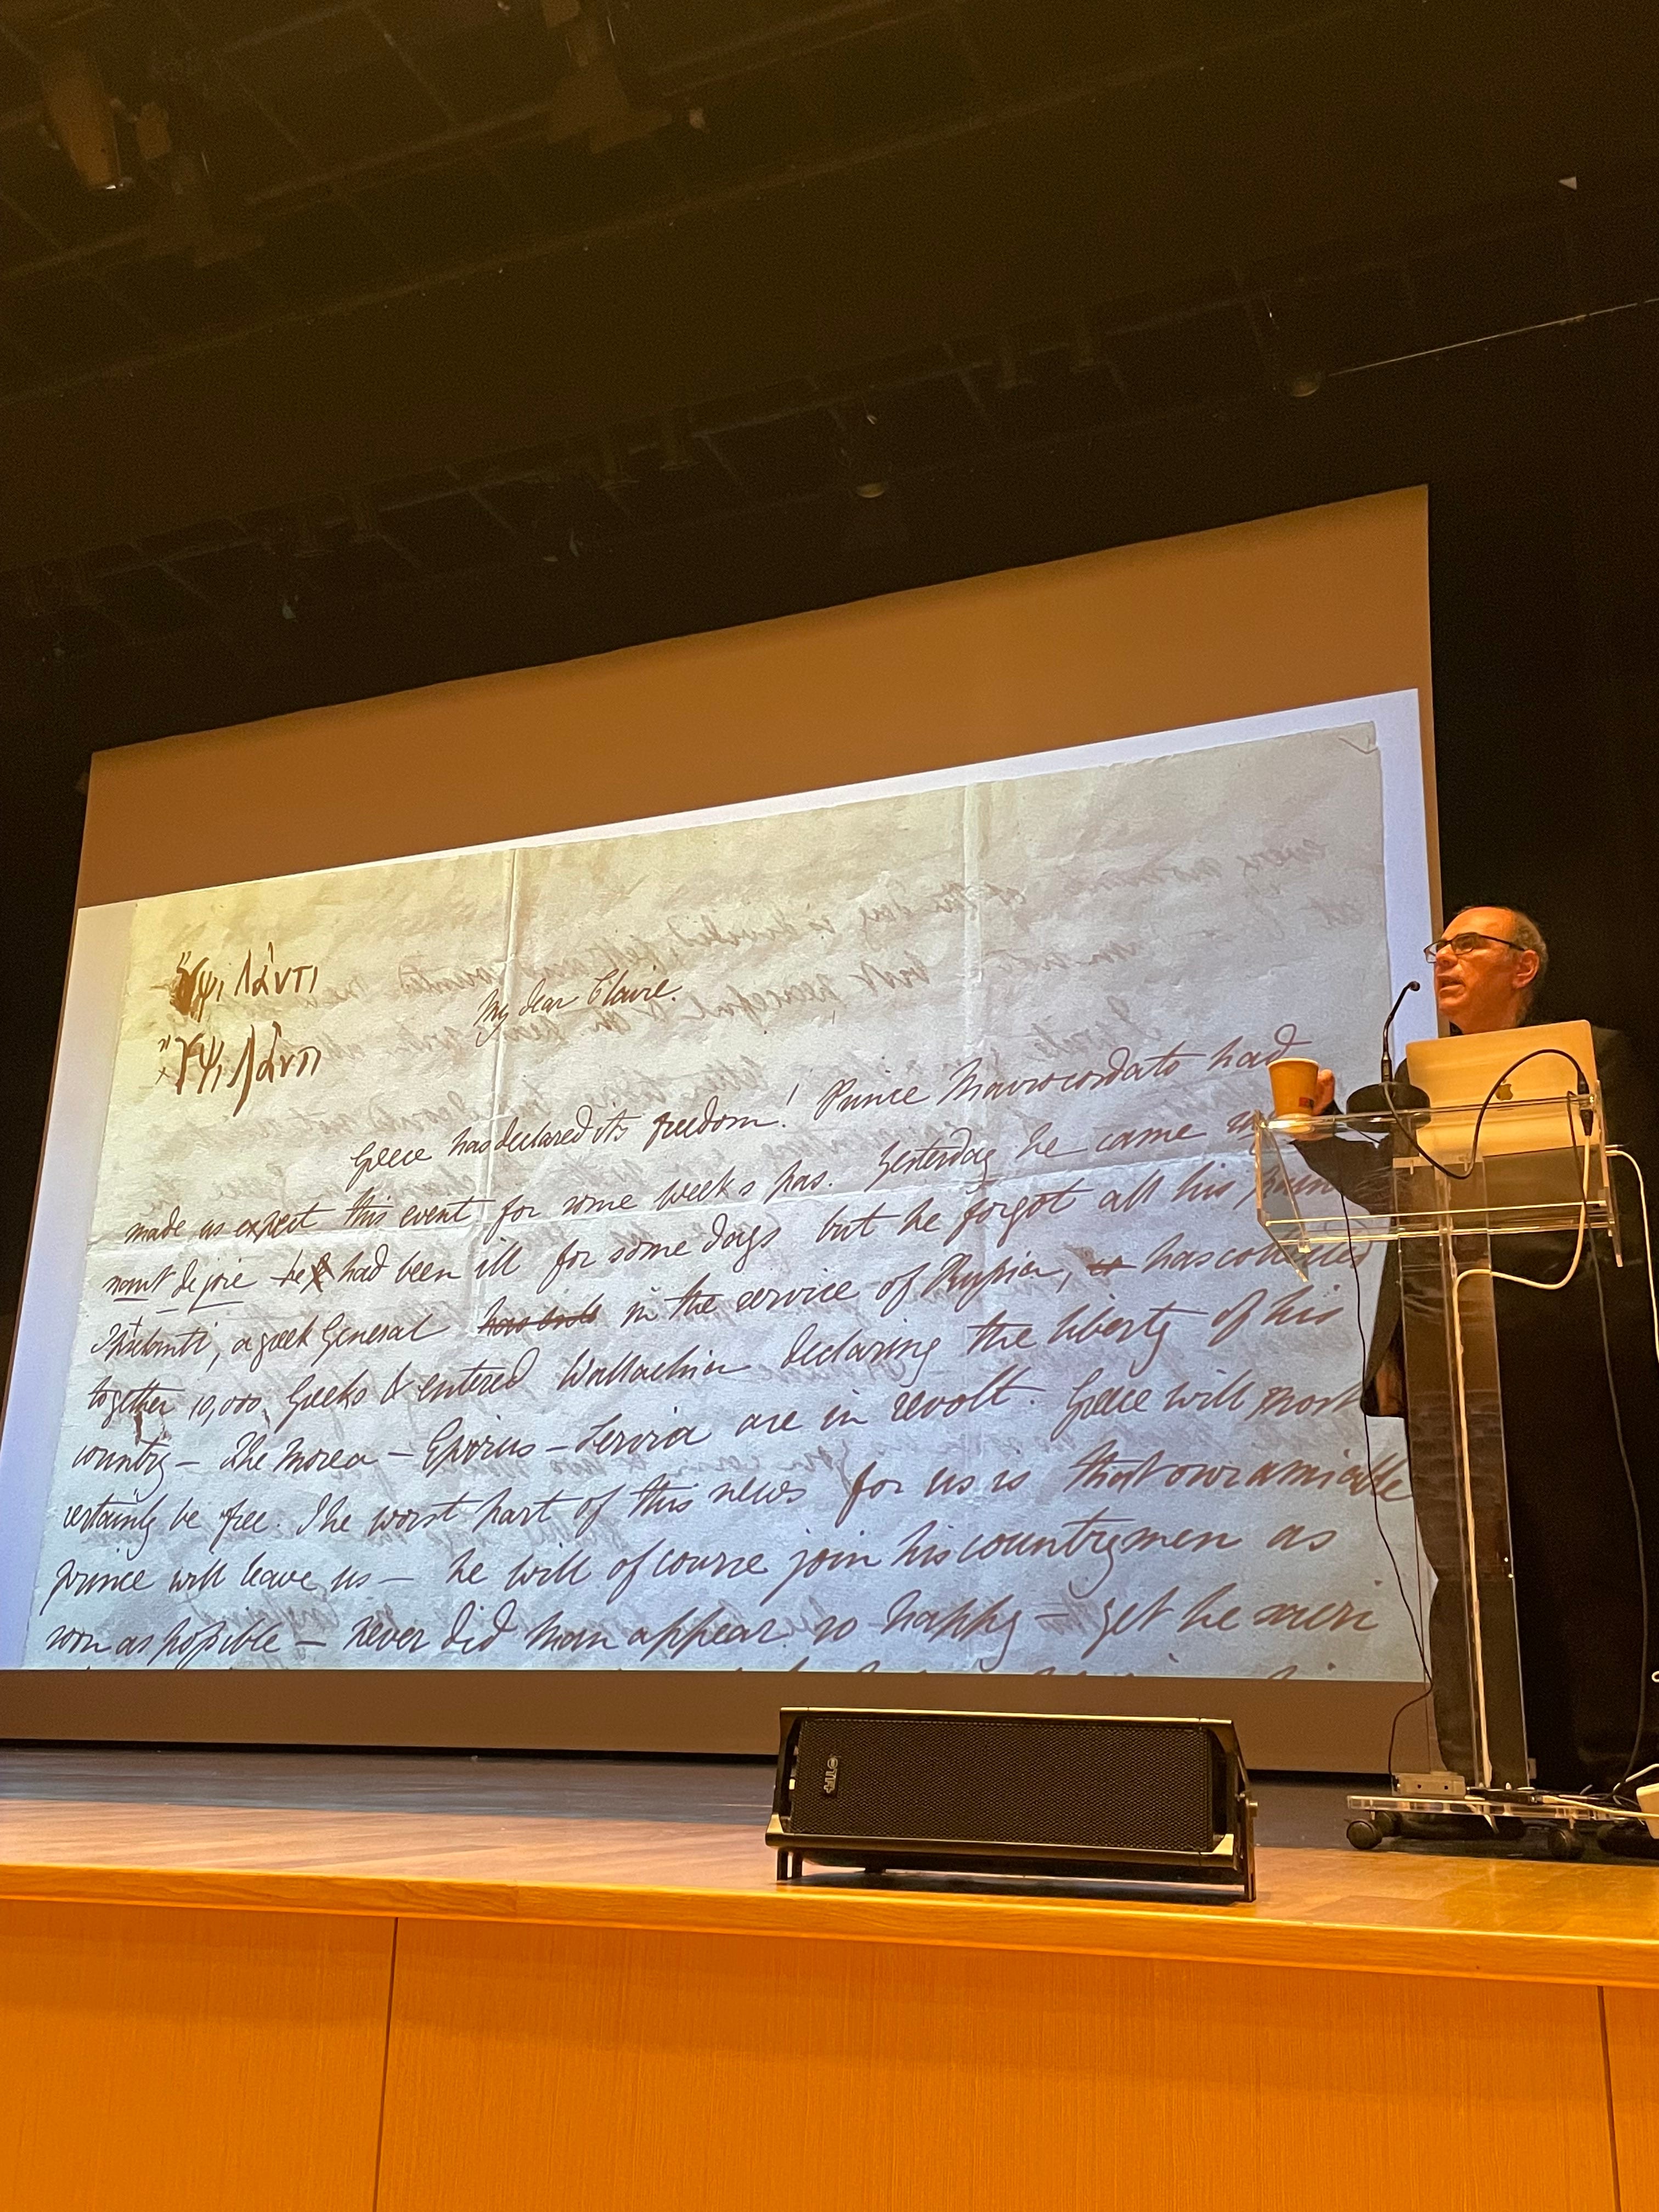 Ὑψι λάντι
My dear Claire.
Ὑψι λάντι
Greece has declared its freedom! Prince Mavrocordato had
made us expect this event for some weeks pas. Yesterday he came
rayonnant de joie he had been ill for some days but he forgot all his
Ipselanti, a greek General in the service of Russia, has collected
together 10,000 Greeks & entered Wallachia declaring the liberty of his
country — The Morea — Epirus — Servia are in revolt. Greece will most
certainly be free. The worst part of this news for us is that our amiable
prince will leave us — he will of course join his countrymen as
soon as possible — never did man appear so happy — yet he sacri